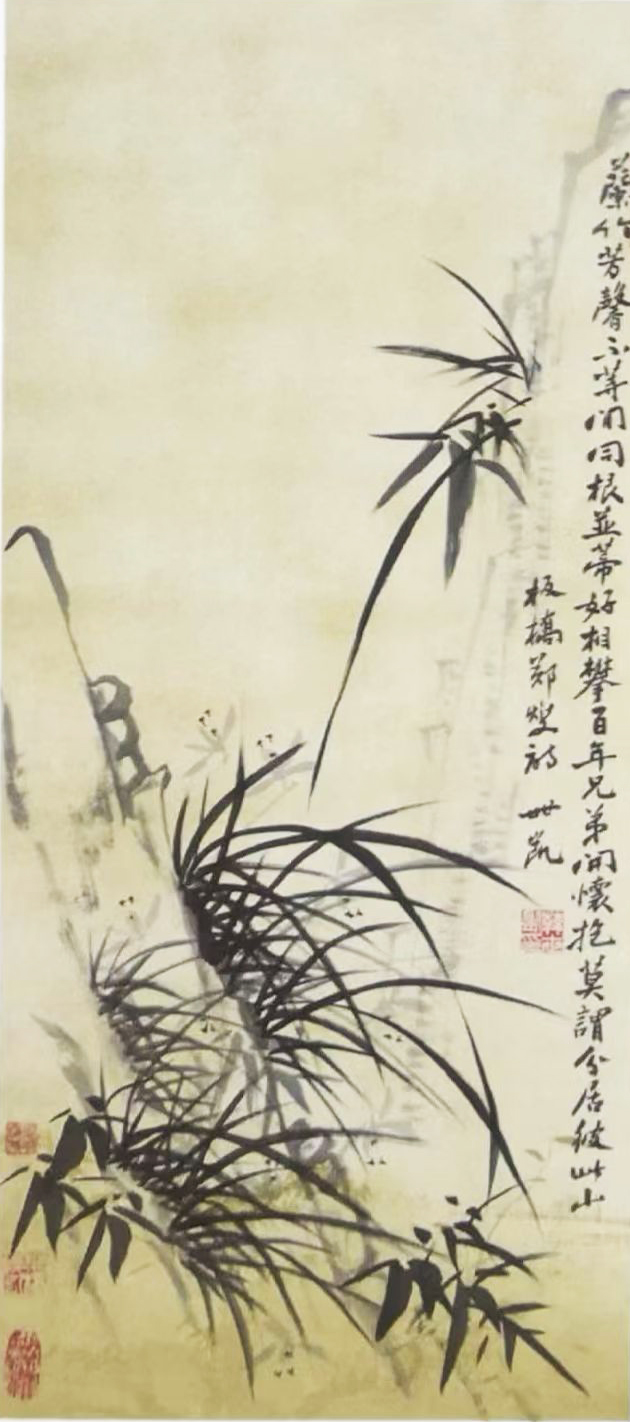 蘭竹芳馨不等閒同根並蒂好相攀百年兄弟開懷抱莫謂分居彼此山
板橋鄭燮詩 世凱